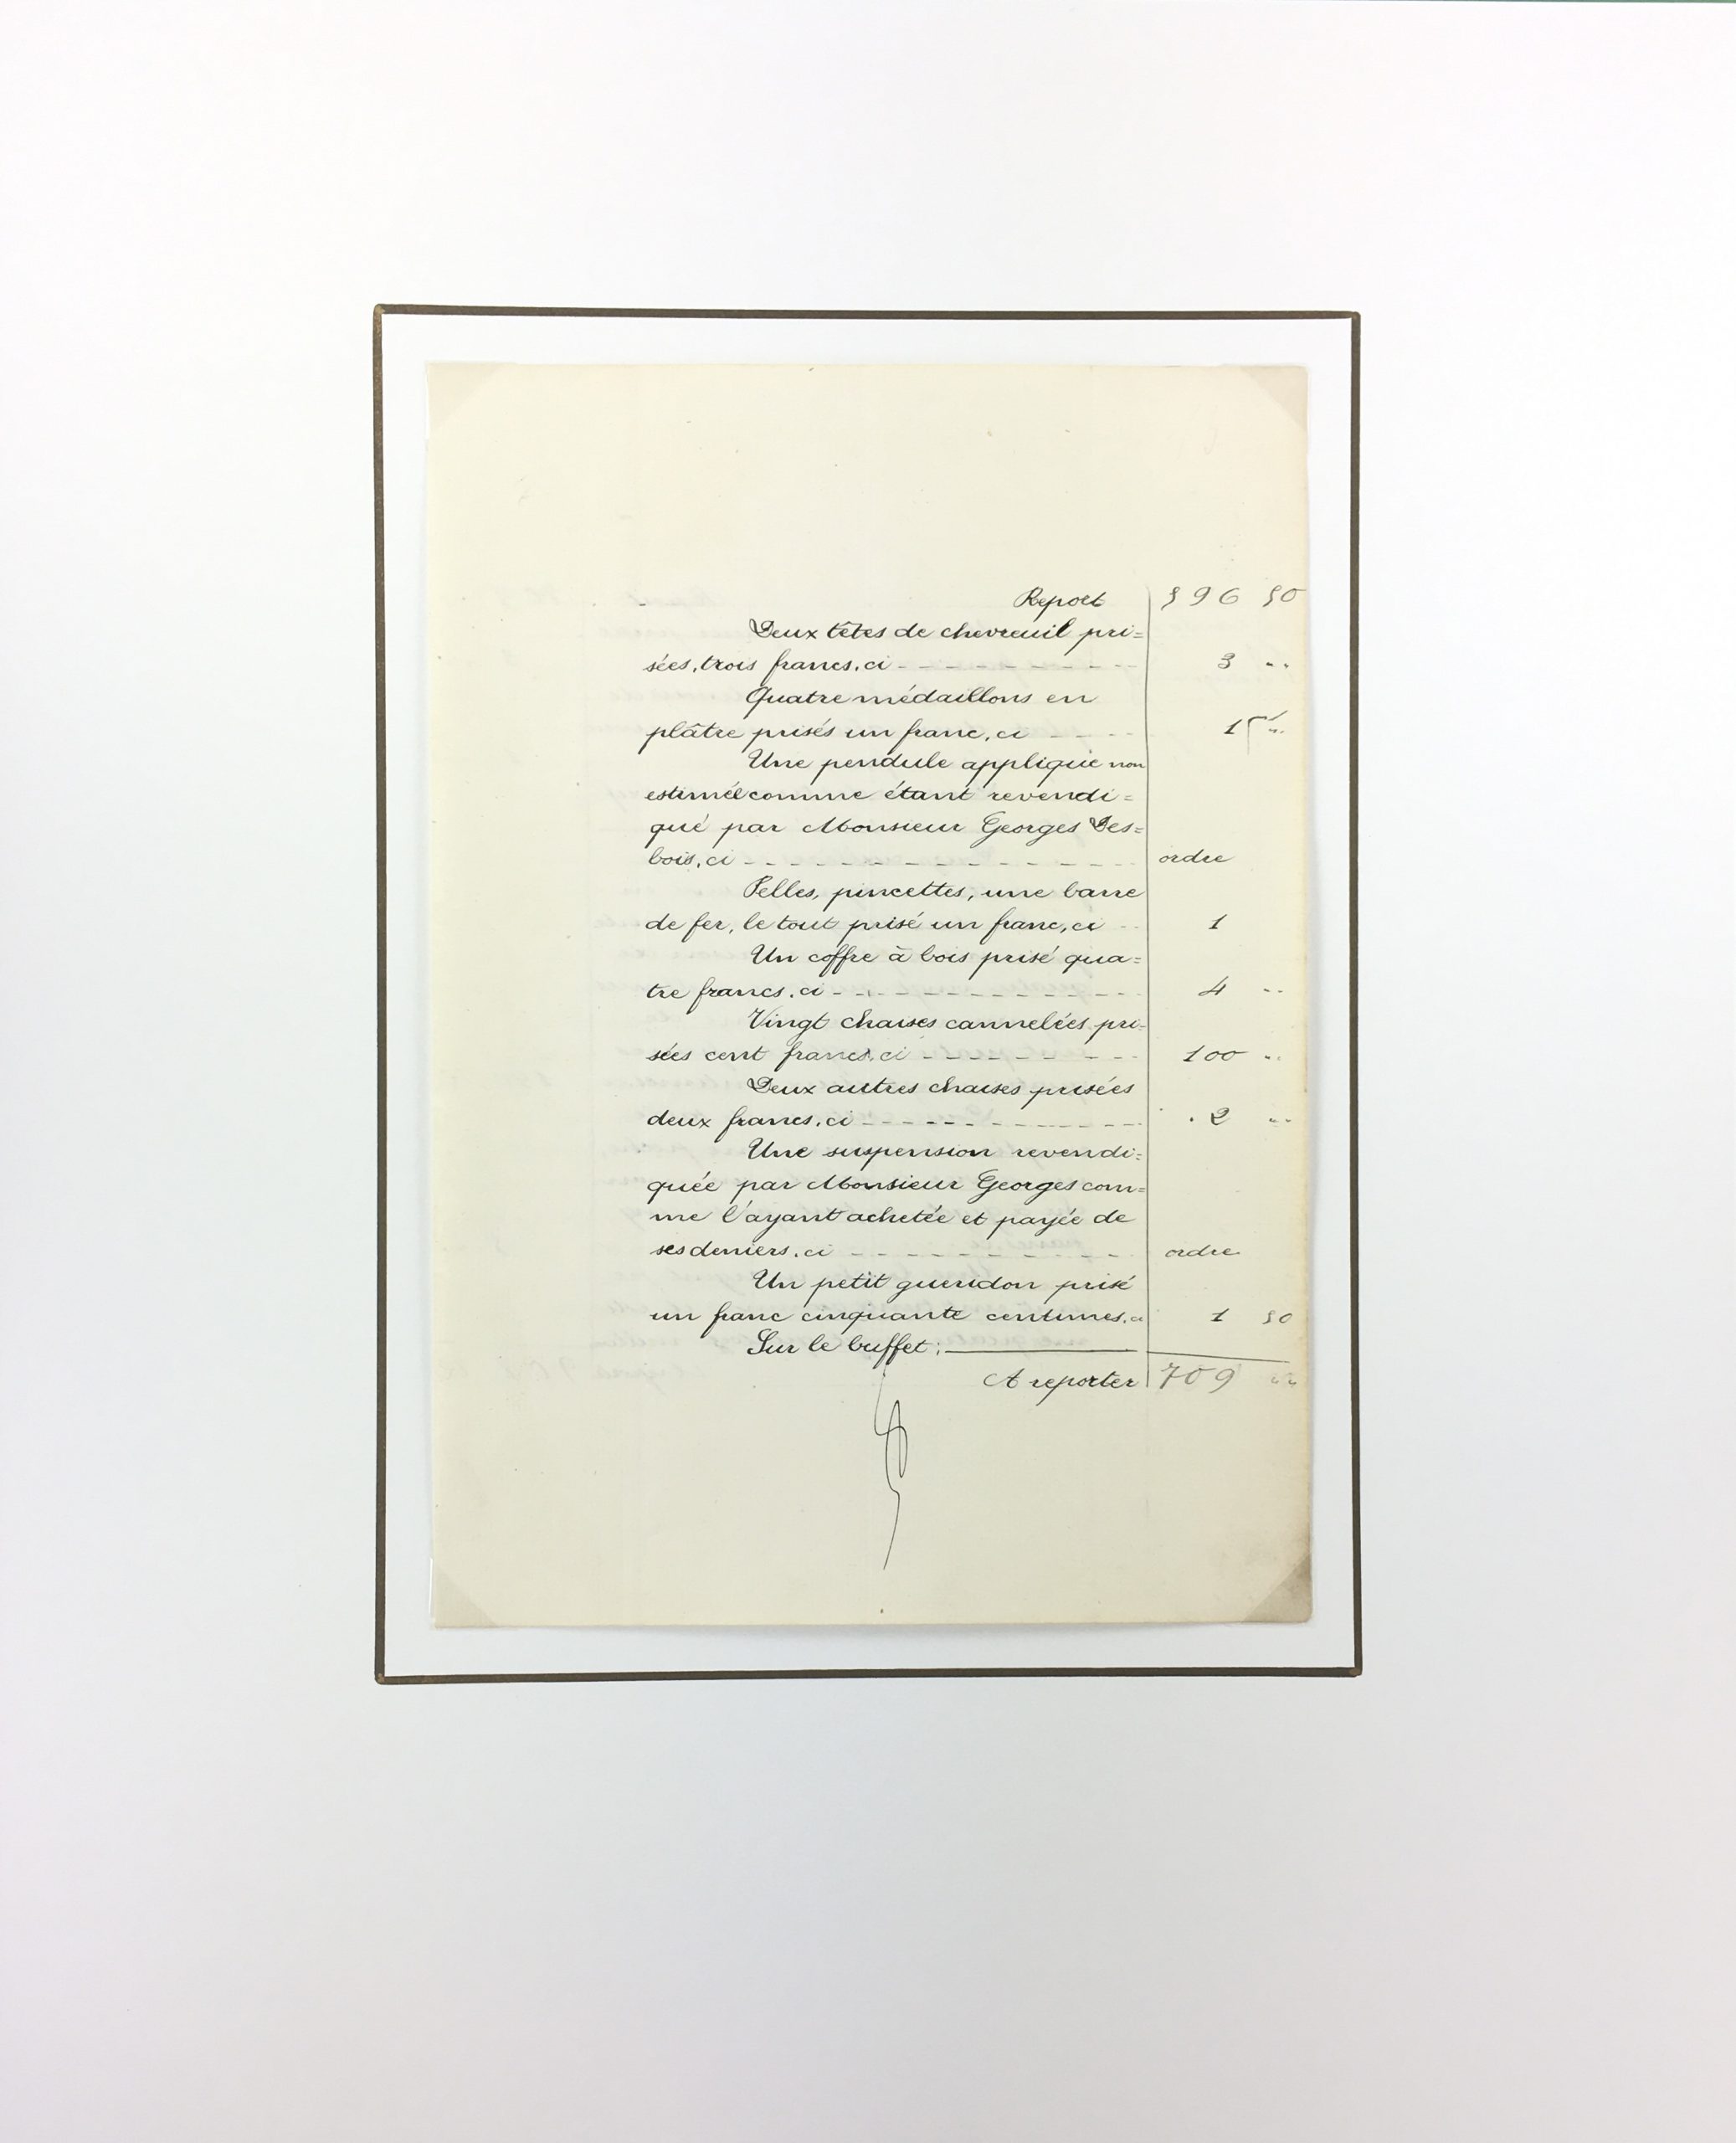 Report 596 50
Deux têtes de chevreuil pri=
sées, trois francs, ci - - - - - - - - - 3 "
Quatre médaillons en
plâtre prisés un franc, ci - - - - 1 "
Une pendule applique non
estimée comme étant revendi=
qué par Monsieur Georges Des=
bois, ci - - - - - - - - - - - - ordre
Pelles, pincettes, une barre
de fer, le tout prisé un franc, ci - - 1
Un coffre à bois prisé qua=
tre francs, ci - - - - - - - - - - - 4 "
Vingt chaises cannelées pri=
sées cent francs, ci - - - - - - - - 100 "
Deux autres chaises prisées
deux francs, ci - - - - - - - - - - 2 "
Une suspension revendi=
quée par Monsieur Georges com=
me l'ayant achetée et payée de
ses deniers, ci - - - - - - - - - ordre
Un petit gueridon prisé
un franc cinquante centimes, ci 1 50
Sur le buffet;
A reporter 709 "